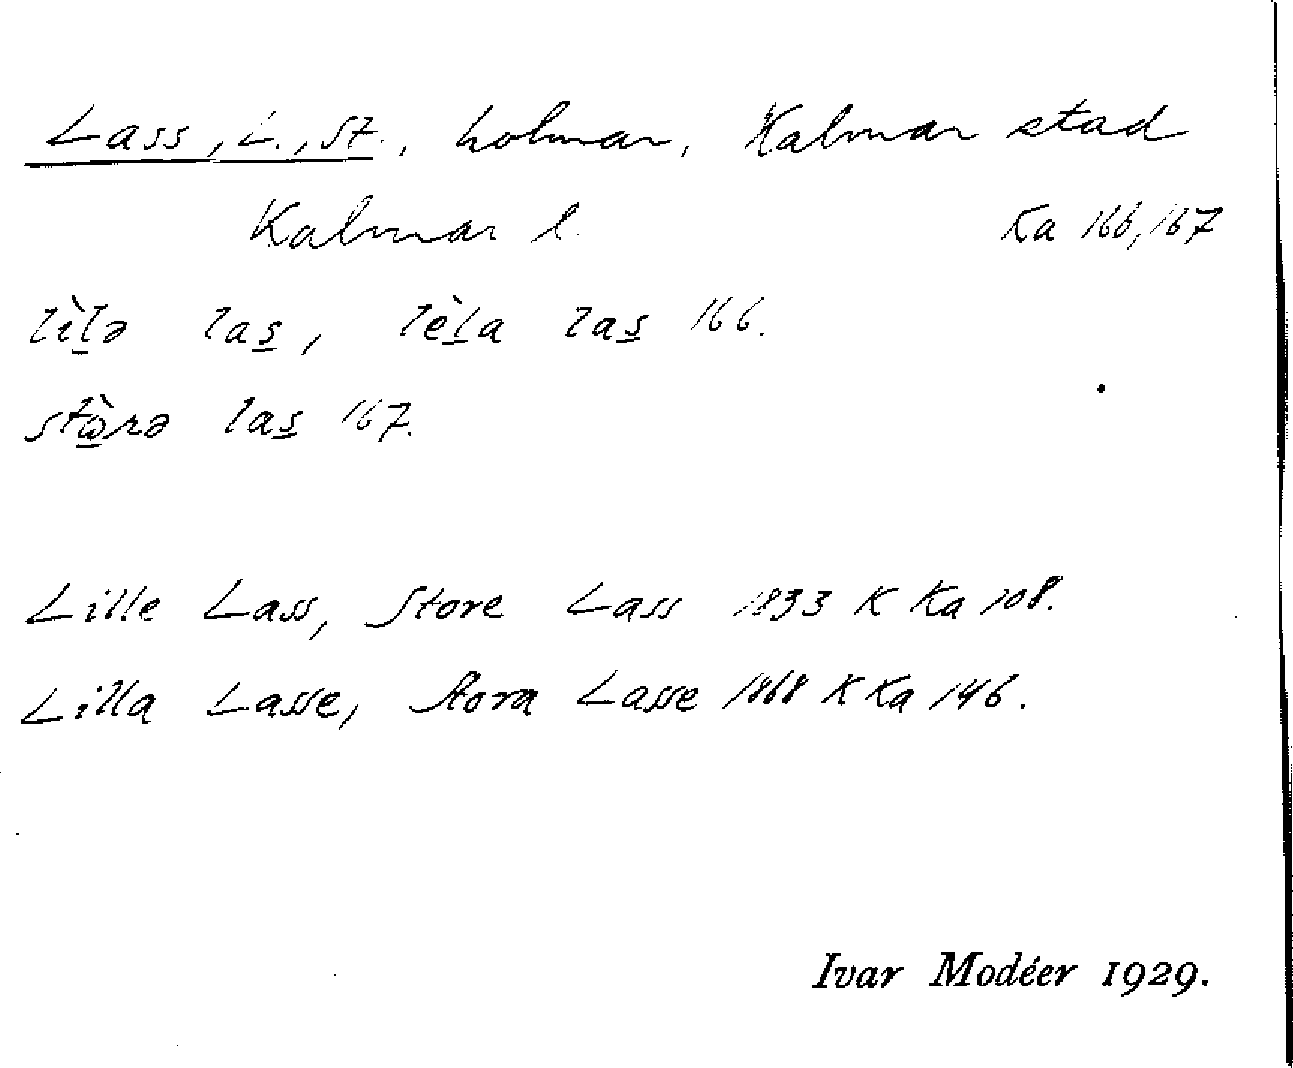 Lass, L., St., holmar, Kalmar stad
Kalmar l. Ka 166, 167
lìl̲ə las̲, lèl̲a las̲ 166.
stὼ̲rə las̲ 167.
Lille Lass, Store Lass 1833 K Ka 108.
Lilla Lasse, Stora Lasse 1868 K Ka 146.
Ivar Modéer 1929.